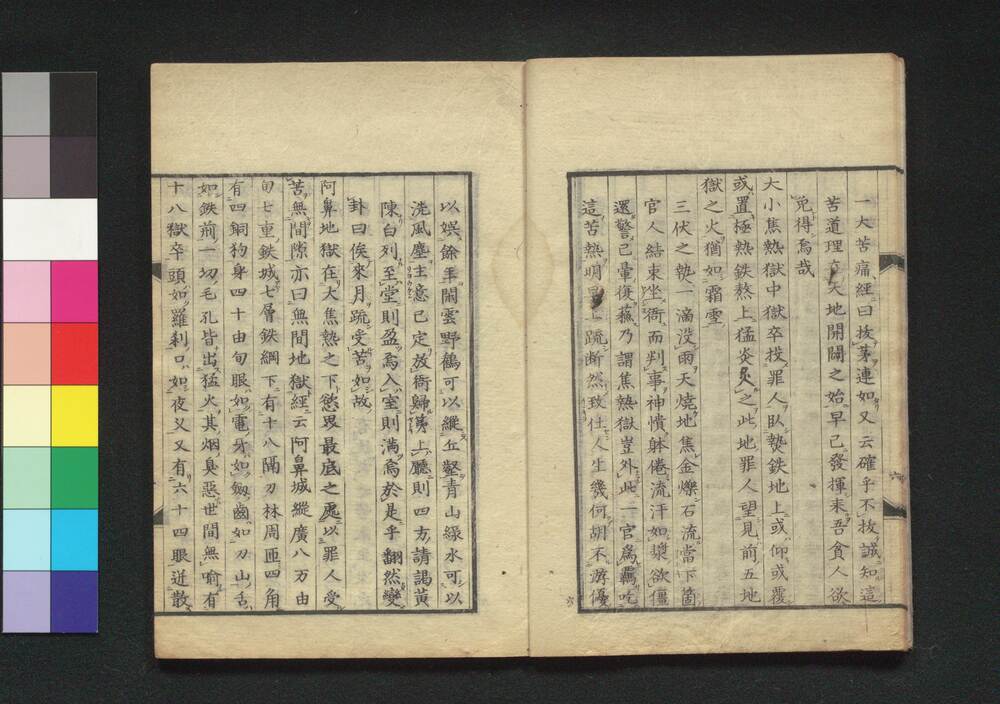 一大苦痛、經曰拔茅連如又云確乎不拔誠知這
苦道理 天地開闢之始早已發揮来吾貪人欲
免得焉哉
大小焦熱獄中獄卒投罪人臥熱鉄地上或仰或覆
或置極熱鉄熬上猛炎炙之此地罪人望見前五地
獄之火猶如霜雪
三伏之熱一滴没雨天燒地焦金爍石流當下箇
官人結束坐衙而判事神憒躰倦流汗如漿欲僵
還警已暈復蘓乃謂焦熱獄豈外此一官為羈吃
這苦熱明 上疏断然致仕人生幾何胡不游優
以娯餘年閑雲野鶴可以縱丘壑青山緑水可以
洗風塵主意已定放衙歸第上廳則四方請謁黄
陳白列至堂則盈焉入室則満焉於是乎翻然變
卦曰俟來月疏受苦如故
阿鼻地獄在大焦熱之下慾界最底之處以罪人受
苦無間隙亦曰無間地獄經云阿鼻城縱廣八万由
旬七重鉄城七層鉄網下有十八隔刀林周匝四角
有四銅狗身四十由旬眼如電牙如劔齒如刀山舌
如鉄荊一切毛孔皆出猛火其烟臭惡世間無喻有
十八獄卒頭如羅刹口如夜叉又有六十四眼迸散
六
六